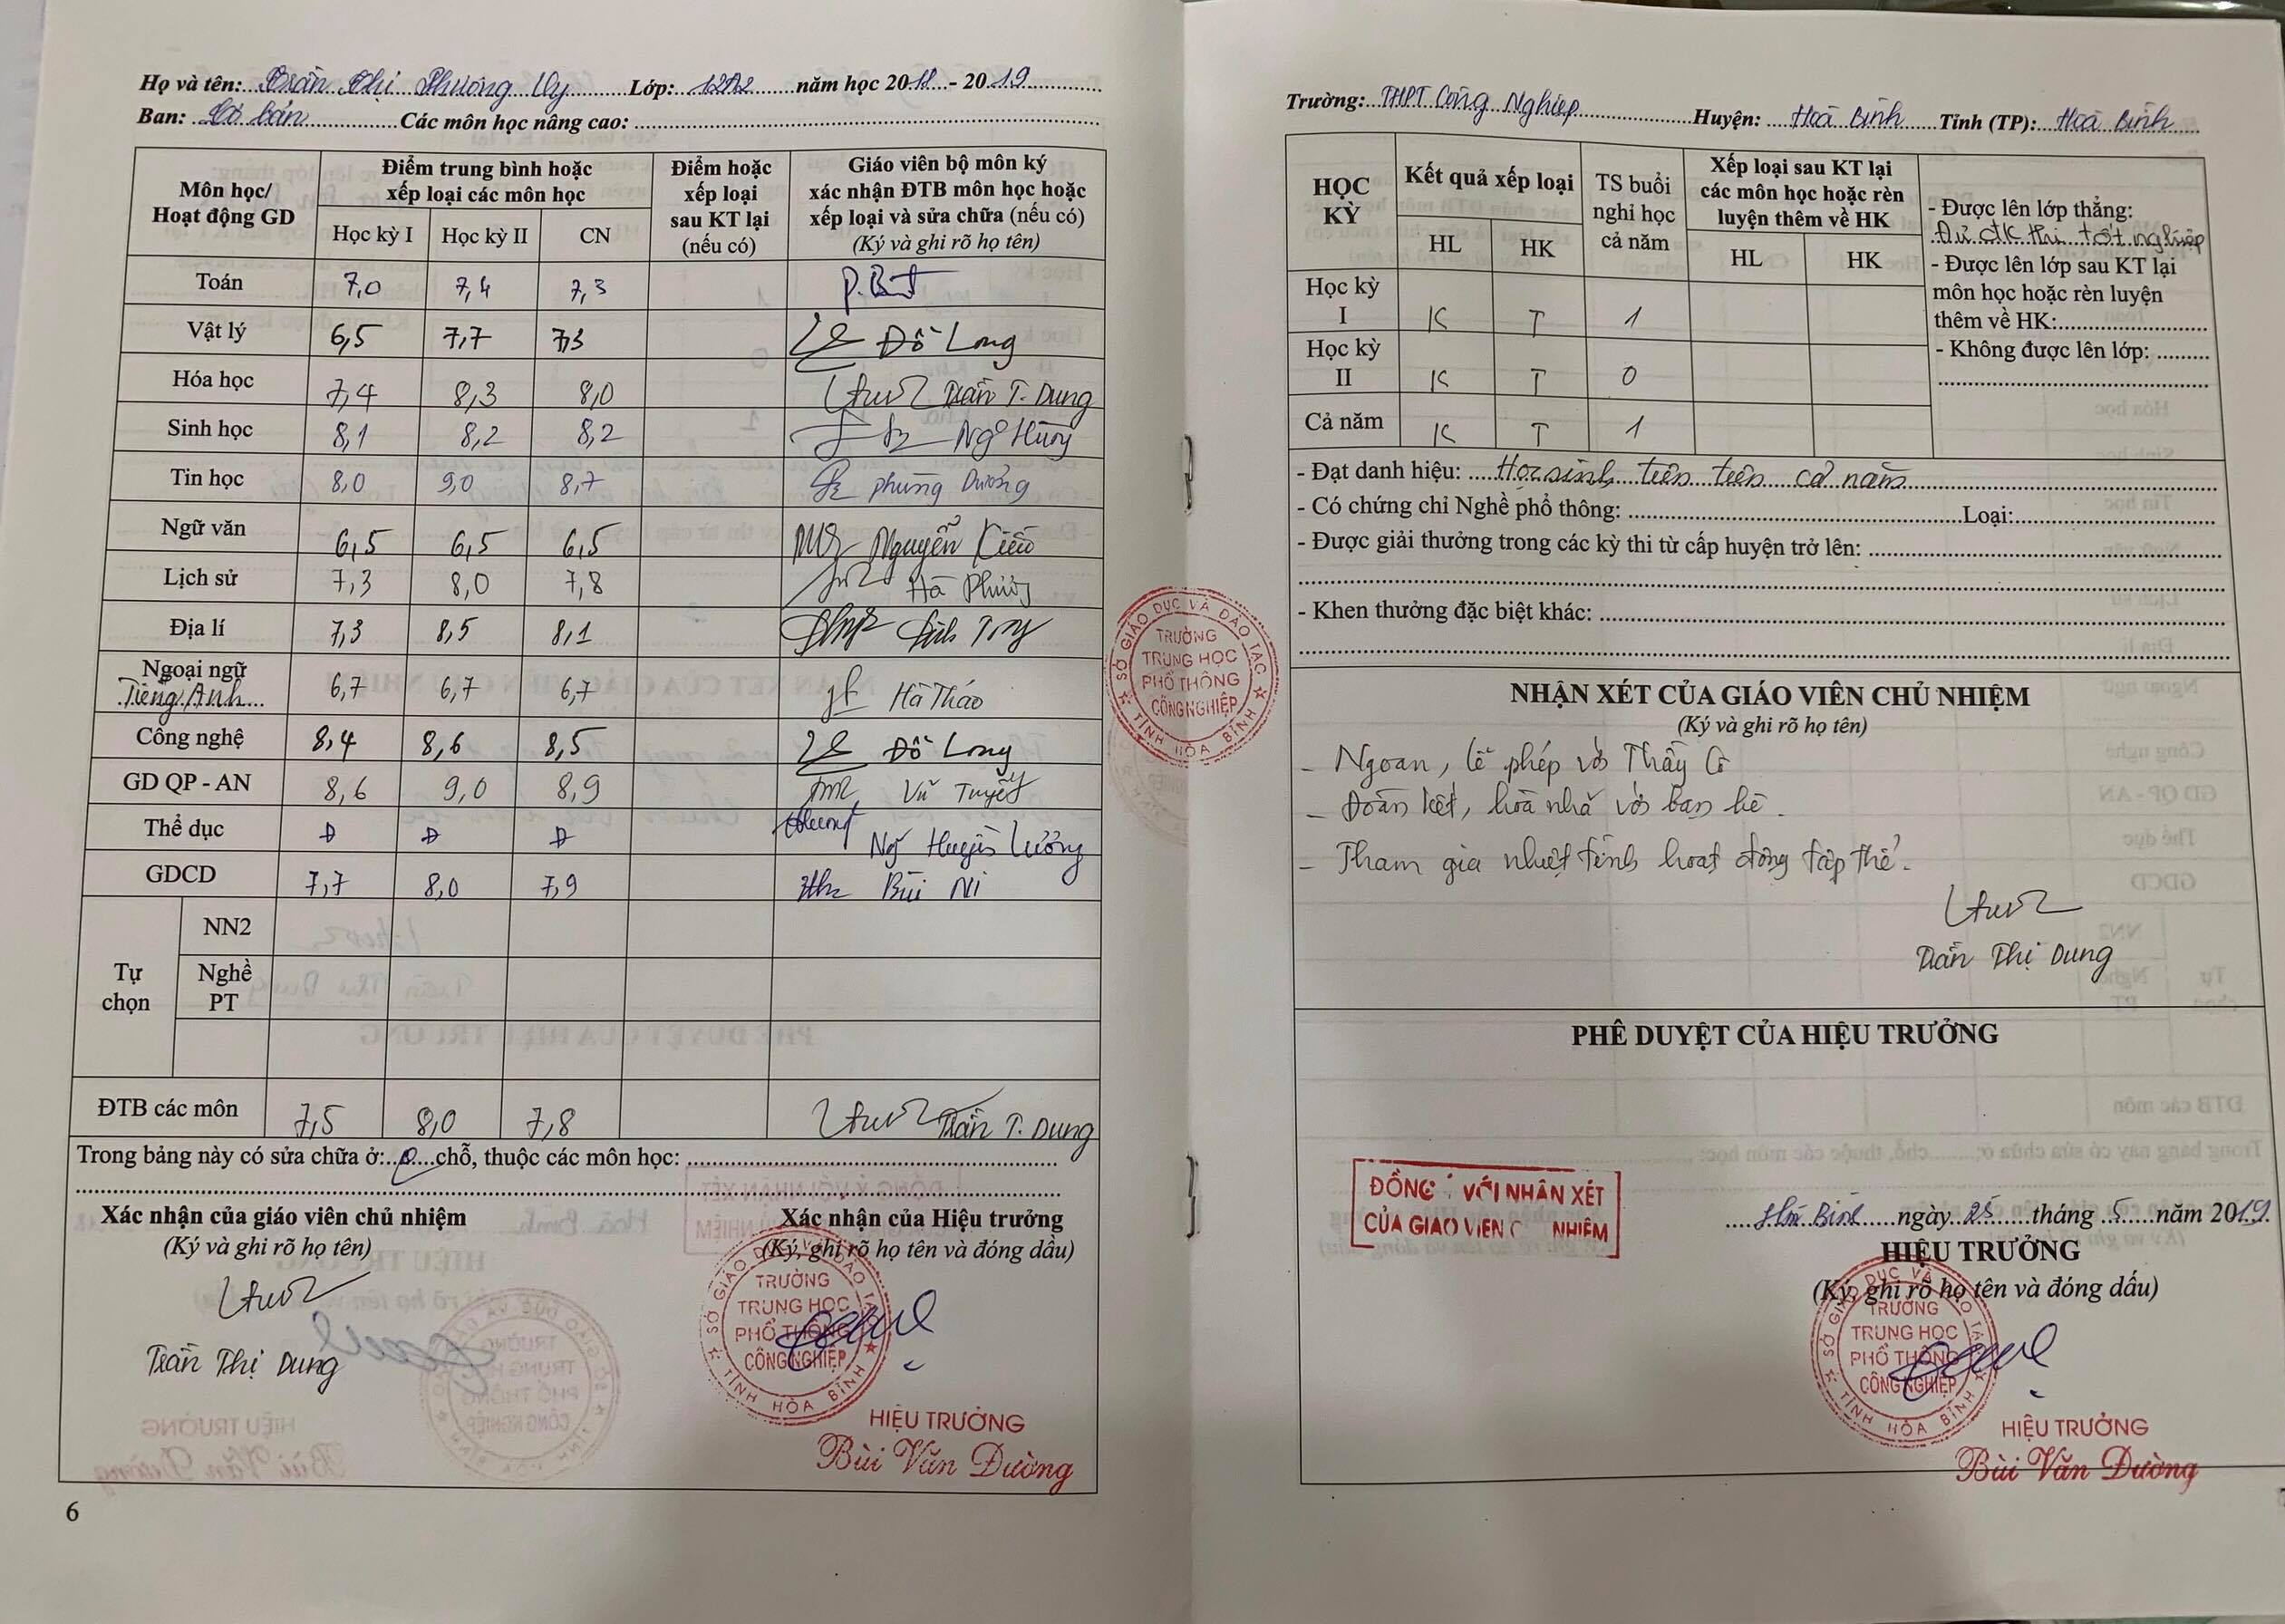 Họ và tên: Trần Thị Phương Uy Lớp: 12A2 năm học 2018 - 2019
Ban: Cơ bản Các môn học nâng cao:
Môn học/ Hoạt động GD | Điểm trung bình hoặc xếp loại các môn học | Điểm hoặc xếp loại sau KT lại (nếu có) | Giáo viên bộ môn ký xác nhận ĐTB môn học hoặc xếp loại và sửa chữa (nếu có) (Ký và ghi rõ họ tên)
Học kỳ I | Học kỳ II | CN
Toán 7,0 7,4 7,3
Vật lý 6,5 7,7 7,3 Đỗ Long
Hóa học 7,4 8,3 8,0 Trần T. Dung
Sinh học 8,1 8,2 8,2 Ngô Hùng
Tin học 8,0 9,0 8,7 Phùng Dưỡng
Ngữ văn 6,5 6,5 6,5 Nguyễn Kiều
Lịch sử 7,3 8,0 7,8 Hà Phương
Địa lí 7,3 8,5 8,1
Ngoại ngữ
Tiếng Anh 6,7 6,7 6,7 Hà Thảo
Công nghệ 8,4 8,6 8,5 Đỗ Long
GD QP - AN 8,6 9,0 8,9 Vũ Tuyết
Thể dục Đ Đ Đ
GDCD 7,7 8,0 7,9 Bùi Ni
Tự chọn
NN2
Nghề PT
ĐTB các môn 7,5 8,0 7,8 Trần T. Dung
Trong bảng này có sửa chữa ở: 0 chỗ, thuộc các môn học:
Xác nhận của giáo viên chủ nhiệm
(Ký và ghi rõ họ tên)
Trần Thị Dung
Xác nhận của Hiệu trưởng
(Ký, ghi rõ họ tên và đóng dấu)
SỞ GIÁO DỤC VÀ ĐÀO TẠO
TRƯỜNG
TRUNG HỌC
PHỔ THÔNG
CÔNG NGHIỆP
TỈNH HÒA BÌNH
HIỆU TRƯỞNG
Bùi Văn Đường
6
SỞ GIÁO DỤC VÀ ĐÀO TẠO
TRƯỜNG
TRUNG HỌC
PHỔ THÔNG
CÔNG NGHIỆP
TỈNH HÒA BÌNH
Trường: THPT Công Nghiệp Huyện: Hoà Bình Tỉnh (TP): Hoà Bình
HỌC KỲ | Kết quả xếp loại | TS buổi nghỉ học cả năm | Xếp loại sau KT lại các môn học hoặc rèn luyện thêm về HK
HL | HK | HL | HK
Học kỳ I K T 1
Học kỳ II K T 0
Cả năm K T 1
- Được lên lớp thẳng:
Đủ đk thi tốt nghiệp
- Được lên lớp sau KT lại
môn học hoặc rèn luyện
thêm về HK:
- Không được lên lớp:
- Đạt danh hiệu: Học sinh tiên tiến cả năm
- Có chứng chỉ Nghề phổ thông: Loại:
- Được giải thưởng trong các kỳ thi từ cấp huyện trở lên:
- Khen thưởng đặc biệt khác:
NHẬN XÉT CỦA GIÁO VIÊN CHỦ NHIỆM
(Ký và ghi rõ họ tên)
- Ngoan, lễ phép với Thầy Cô
- Đoàn kết, hoà nhã với bạn bè.
- Tham gia nhiệt tình hoạt động tập thể.
Trần Thị Dung
PHÊ DUYỆT CỦA HIỆU TRƯỞNG
ĐỒNG VỚI NHẬN XÉT
CỦA GIÁO VIÊN NHIỆM
Hoà Bình ngày 25 tháng 5 năm 2019
HIỆU TRƯỞNG
(Ký, ghi rõ họ tên và đóng dấu)
SỞ GIÁO DỤC VÀ ĐÀO TẠO
TRƯỜNG
TRUNG HỌC
PHỔ THÔNG
CÔNG NGHIỆP
TỈNH HÒA BÌNH
HIỆU TRƯỞNG
Bùi Văn Đường